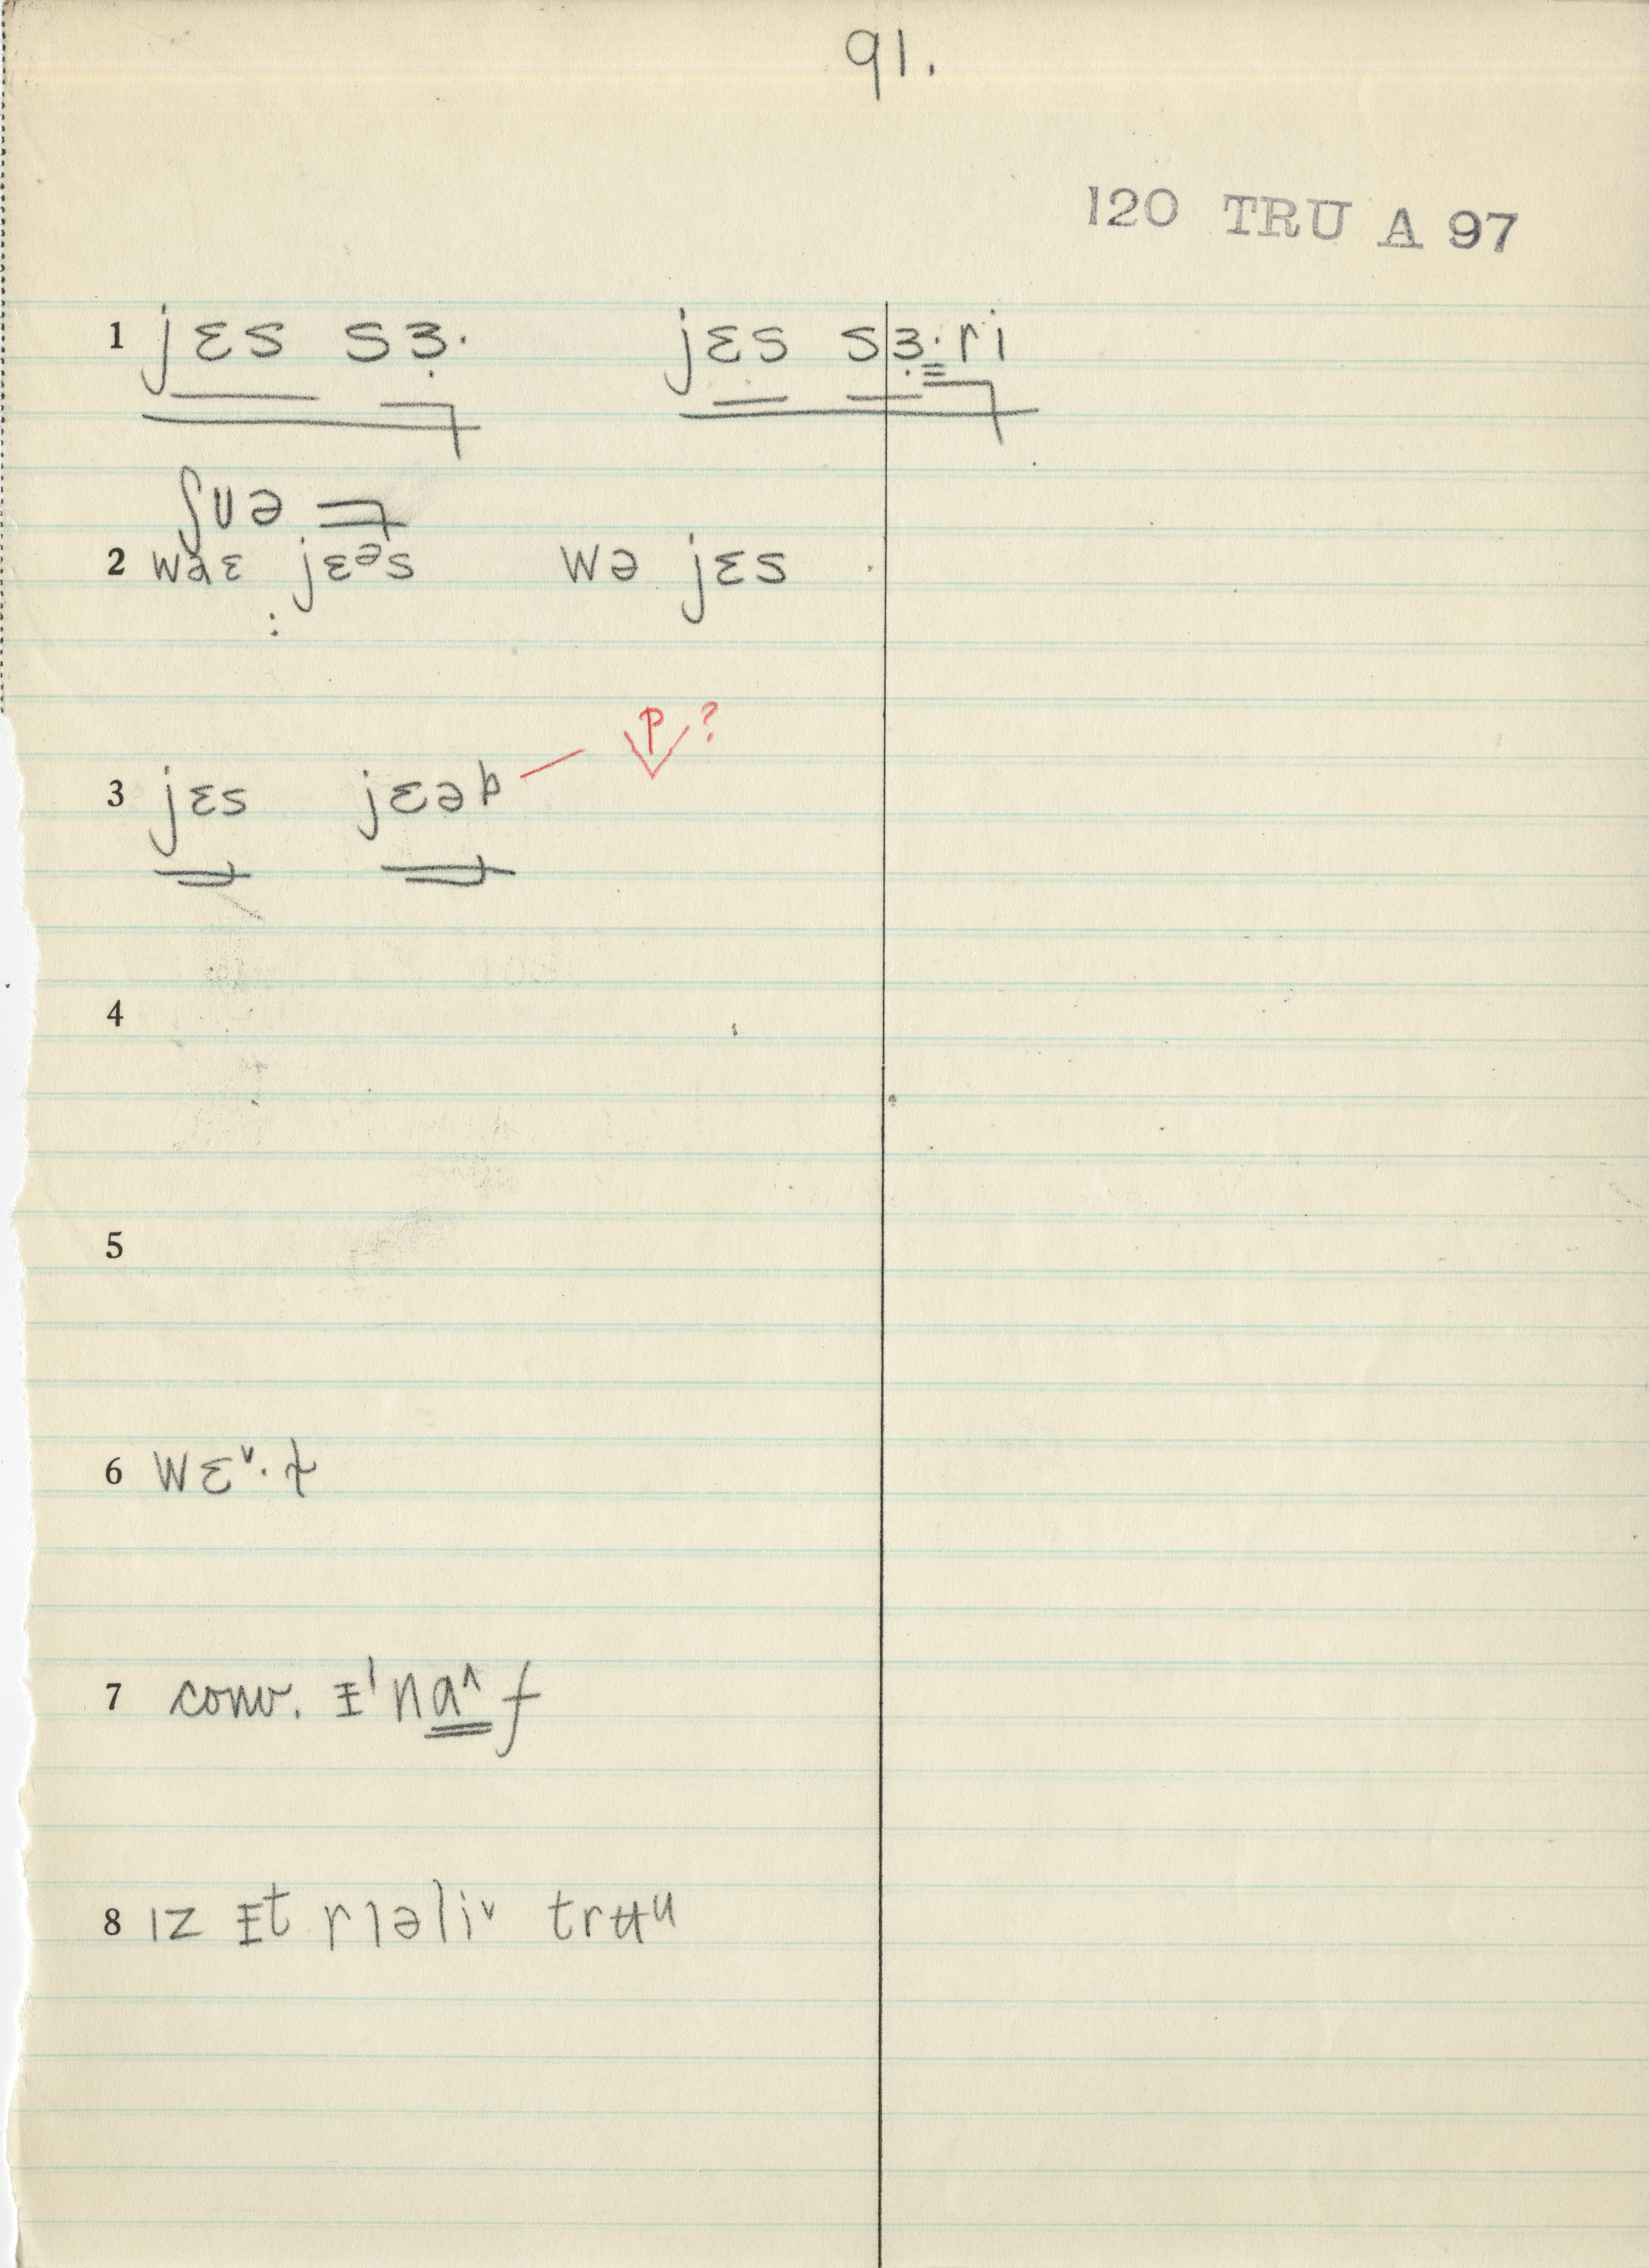 91.
120 TRU A 97
1 jɛs sɜ̣· jɛs sɜ̣·ri
ʃuə
2 jɛᵊs wə jɛs
3 jɛs jɛəb p ?
4
5
6 wɛˇ·t
7 conv. ɪ'na^f
8 ɪz ɪt rɪəliˇ trʉu